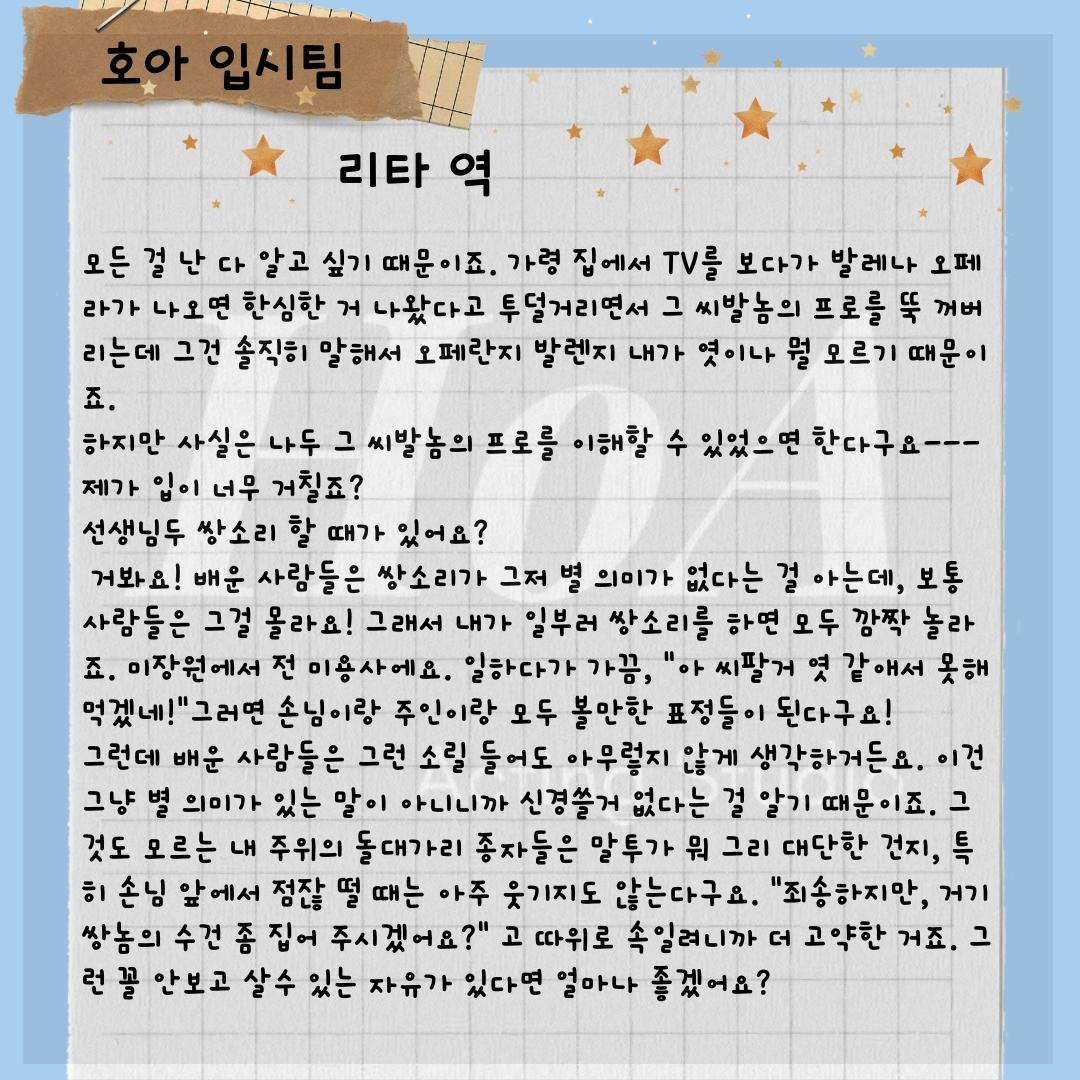 호아 입시팀
리타 역
모든 걸 난 다 알고 싶기 때문이죠. 가령 집에서 TV를 보다가 발레나 오페
라가 나오면 한심한 거 나왔다고 투덜거리면서 그 씨발놈의 프로를 뚝 꺼버
리는데 그건 솔직히 말해서 오페란지 발렌지 내가 엿이나 뭘 모르기 때문이
죠.
하지만 사실은 나두 그 씨발놈의 프로를 이해할 수 있었으면 한다구요---
제가 입이 너무 거칠죠?
선생님두 쌍소리 할 때가 있어요?
거봐요! 배운 사람들은 쌍소리가 그저 별 의미가 없다는 걸 아는데, 보통
사람들은 그걸 몰라요! 그래서 내가 일부러 쌍소리를 하면 모두 깜짝 놀라
죠. 미장원에서 전 미용사에요. 일하다가 가끔, "아 씨팔거 엿 같애서 못해
먹겠네!"그러면 손님이랑 주인이랑 모두 볼만한 표정들이 된다구요!
그런데 배운 사람들은 그런 소릴 들어도 아무렇지 않게 생각하거든요. 이건
그냥 별 의미가 있는 말이 아니니까 신경쓸거 없다는 걸 알기 때문이죠. 그
것도 모르는 내 주위의 돌대가리 종자들은 말투가 뭐 그리 대단한 건지, 특
히 손님 앞에서 점잖 떨 때는 아주 웃기지도 않는다구요. "죄송하지만, 거기
쌍놈의 수건 좀 집어 주시겠어요?" 고 따위로 속일려니까 더 고약한 거죠. 그
런 꼴 안보고 살수 있는 자유가 있다면 얼마나 좋겠어요?
HoA
Acting Studio